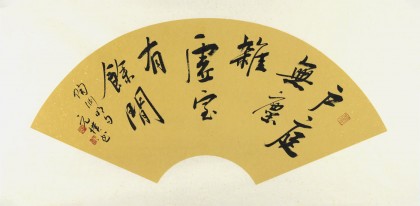 戶庭
無塵
雜
虛室
有
餘閒
陶渊明句